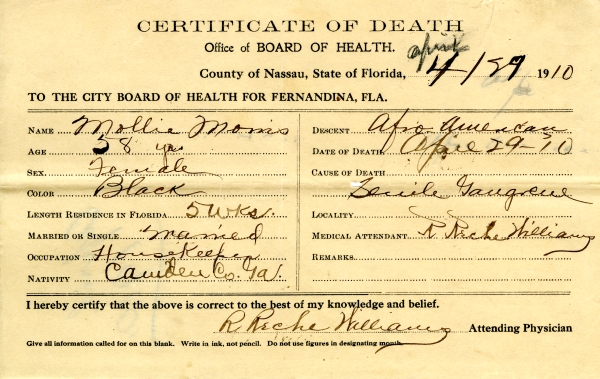 CERTIFICATE OF DEATH
Office of BOARD OF HEALTH.
April
County of Nassau, State of Florida, 4/29 1910
TO THE CITY BOARD OF HEALTH FOR FERNANDINA, FLA.
NAME Mollie Morris
AGE 58 yrs
SEX Female
COLOR Black
LENGTH RESIDENCE IN FLORIDA 5 wks.
MARRIED OR SINGLE Married
OCCUPATION Housekeeper
NATIVITY Camden Co. Ga.
DESCENT Afro American
DATE OF DEATH April 29-10
CAUSE OF DEATH
Senile Gangrene
LOCALITY
MEDICAL ATTENDANT R Reche Williams
REMARKS
I hereby certify that the above is correct to the best of my knowledge and belief.
R. Reche Williams Attending Physician
Give all information called for on this blank. Write in ink, not pencil. Do not use figures in designating month.